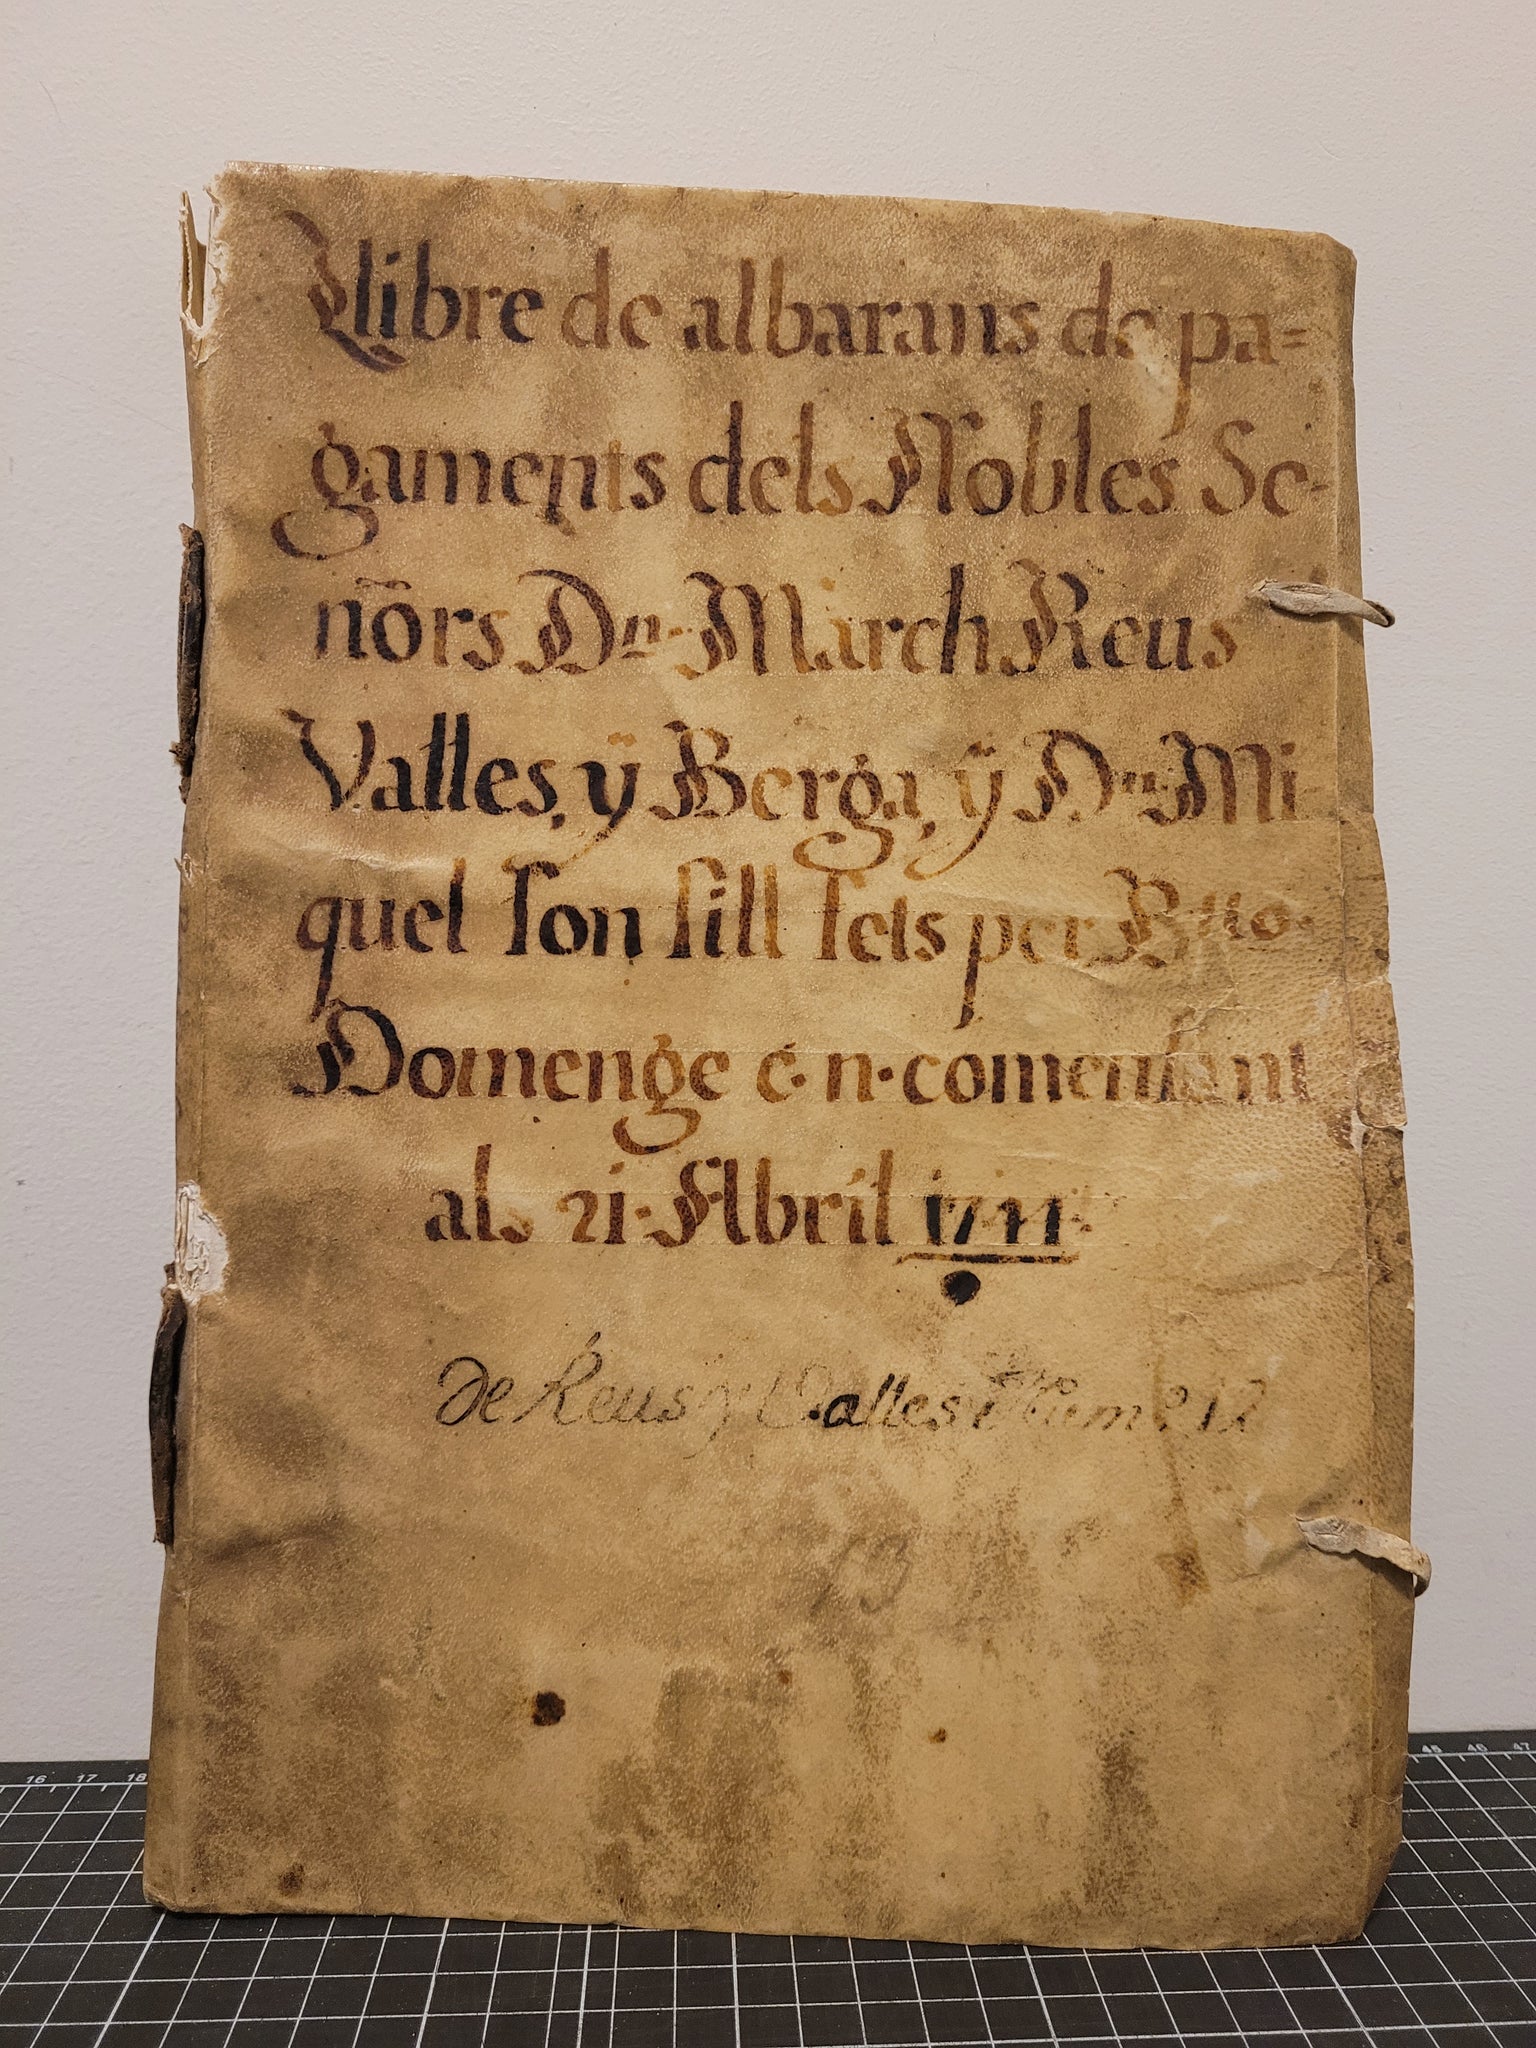 Llibre de albarans de pa=
gaments dels Nobles Se-
nōrs Dn. March Reus
Valles, ÿ Berga, ÿ Dn. Mi-
quel son fill fets per Btto.
Domenge é. n. comensant
als 21. Abril 1711.
de Reus y Valles Num.º 12
13
16 17 18
45 46 47